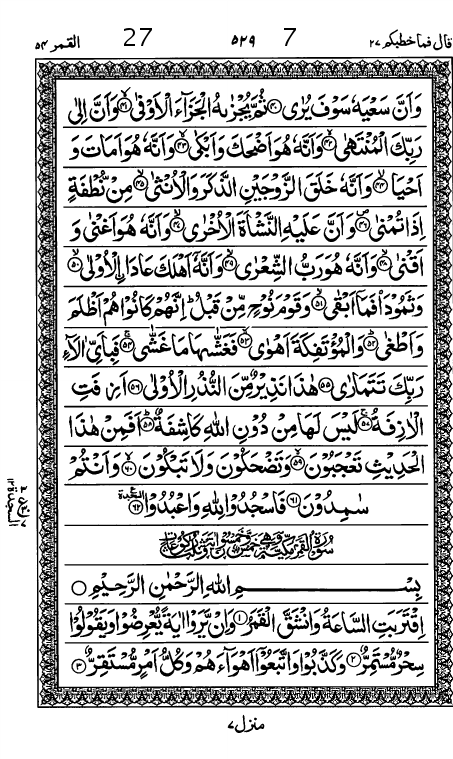 القمر ۵۴ 27 ۵۲۹ 7 قال فما خطبكم ۲۷
وَاَنَّ سَعْيَهٗ سَوْفَ يُرٰى ۴۰ ثُمَّ يُجْزٰىهُ الْجَزَآءَ الْاَوْفٰى ۴۱ وَاَنَّ اِلٰى
رَبِّكَ الْمُنْتَهٰى ۴۲ وَاَنَّهٗ هُوَ اَضْحَكَ وَاَبْكٰى ۴۳ وَاَنَّهٗ هُوَ اَمَاتَ وَ
اَحْيَا ۴۴ وَاَنَّهٗ خَلَقَ الزَّوْجَيْنِ الذَّكَرَ وَالْاُنْثٰى ۴۵ مِنْ نُّطْفَةٍ
اِذَا تُمْنٰى ۴۶ وَاَنَّ عَلَيْهِ النَّشْاَةَ الْاُخْرٰى ۴۷ وَاَنَّهٗ هُوَ اَغْنٰى وَ
اَقْنٰى ۴۸ وَاَنَّهٗ هُوَ رَبُّ الشِّعْرٰى ۴۹ وَاَنَّهٗٓ اَهْلَكَ عَادَا ࣙالْاُوْلٰى ۵۰
وَثَمُوْدَا۟ فَمَآ اَبْقٰى ۵۱ وَقَوْمَ نُوْحٍ مِّنْ قَبْلُ ؕ اِنَّهُمْ كَانُوْا هُمْ اَظْلَمَ
وَاَطْغٰى ۵۲ وَالْمُؤْتَفِكَةَ اَهْوٰى ۵۳ فَغَشّٰىهَا مَا غَشّٰى ۵۴ فَبِاَيِّ اٰلَآءِ
رَبِّكَ تَتَمَارٰى ۵۵ هٰذَا نَذِيْرٌ مِّنَ النُّذُرِ الْاُوْلٰى ۵۶ اَزِفَتِ
الْاٰزِفَةُ ۵۷ لَيْسَ لَهَا مِنْ دُوْنِ اللّٰهِ كَاشِفَةٌ ۵۸ اَفَمِنْ هٰذَا
الْحَدِيْثِ تَعْجَبُوْنَ ۵۹ وَتَضْحَكُوْنَ وَلَا تَبْكُوْنَ ۶۰ وَاَنْتُمْ
سٰمِدُوْنَ ۶۱ فَاسْجُدُوْا لِلّٰهِ وَاعْبُدُوْا ۶۲
السجدة ۱۲
سُوْرَةُ الْقَمَرِ مَكِّيَّةٌ
بِسْمِ اللّٰهِ الرَّحْمٰنِ الرَّحِيْمِ
اِقْتَرَبَتِ السَّاعَةُ وَانْشَقَّ الْقَمَرُ ۱ وَاِنْ يَّرَوْا اٰيَةً يُّعْرِضُوْا وَيَقُوْلُوْا
سِحْرٌ مُّسْتَمِرٌّ ۲ وَكَذَّبُوْا وَاتَّبَعُوْٓا اَهْوَآءَهُمْ وَكُلُّ اَمْرٍ مُّسْتَقِرٌّ ۳
منزل ۷